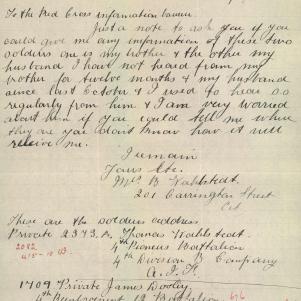 To the Red Cross information bureau.
Just a note to ask you if you
could give me any information of these two
soldiers one is my brother & the other my
husband I have not heard from my
brother for twelve months & my husband
since last October & I used to hear so
regularly from him & I am very worried
about him if you could tell me where
they are you don't know how it will
relieve me.
I remain
Yours Etc.
Mrs B Wahlstedt
201 Carrington Street
City
These are the soldiers address
Private 2373. A. Thomas Wahlstedt
4th Pioneer Battalion
4th Division B Company
A.I.F.
1709 Private James Dooley
4th Reinforcement 12 Battalion